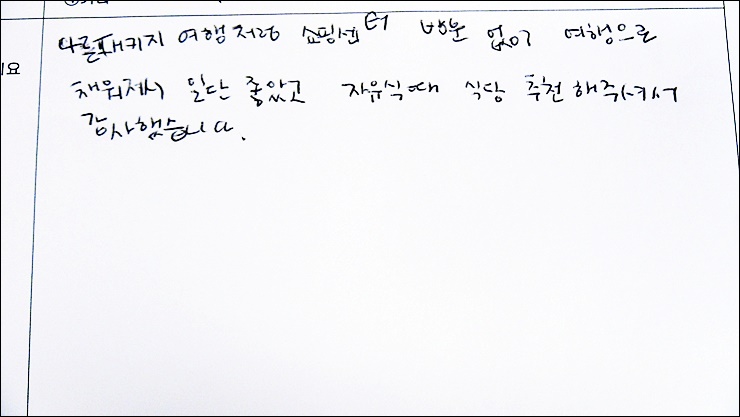 다른패키지 여행처럼 쇼핑센터 방문 없이 여행으로
채워져서 일단 좋았고 자유식때 식당 추천해주셔서
감사했습니다.
요